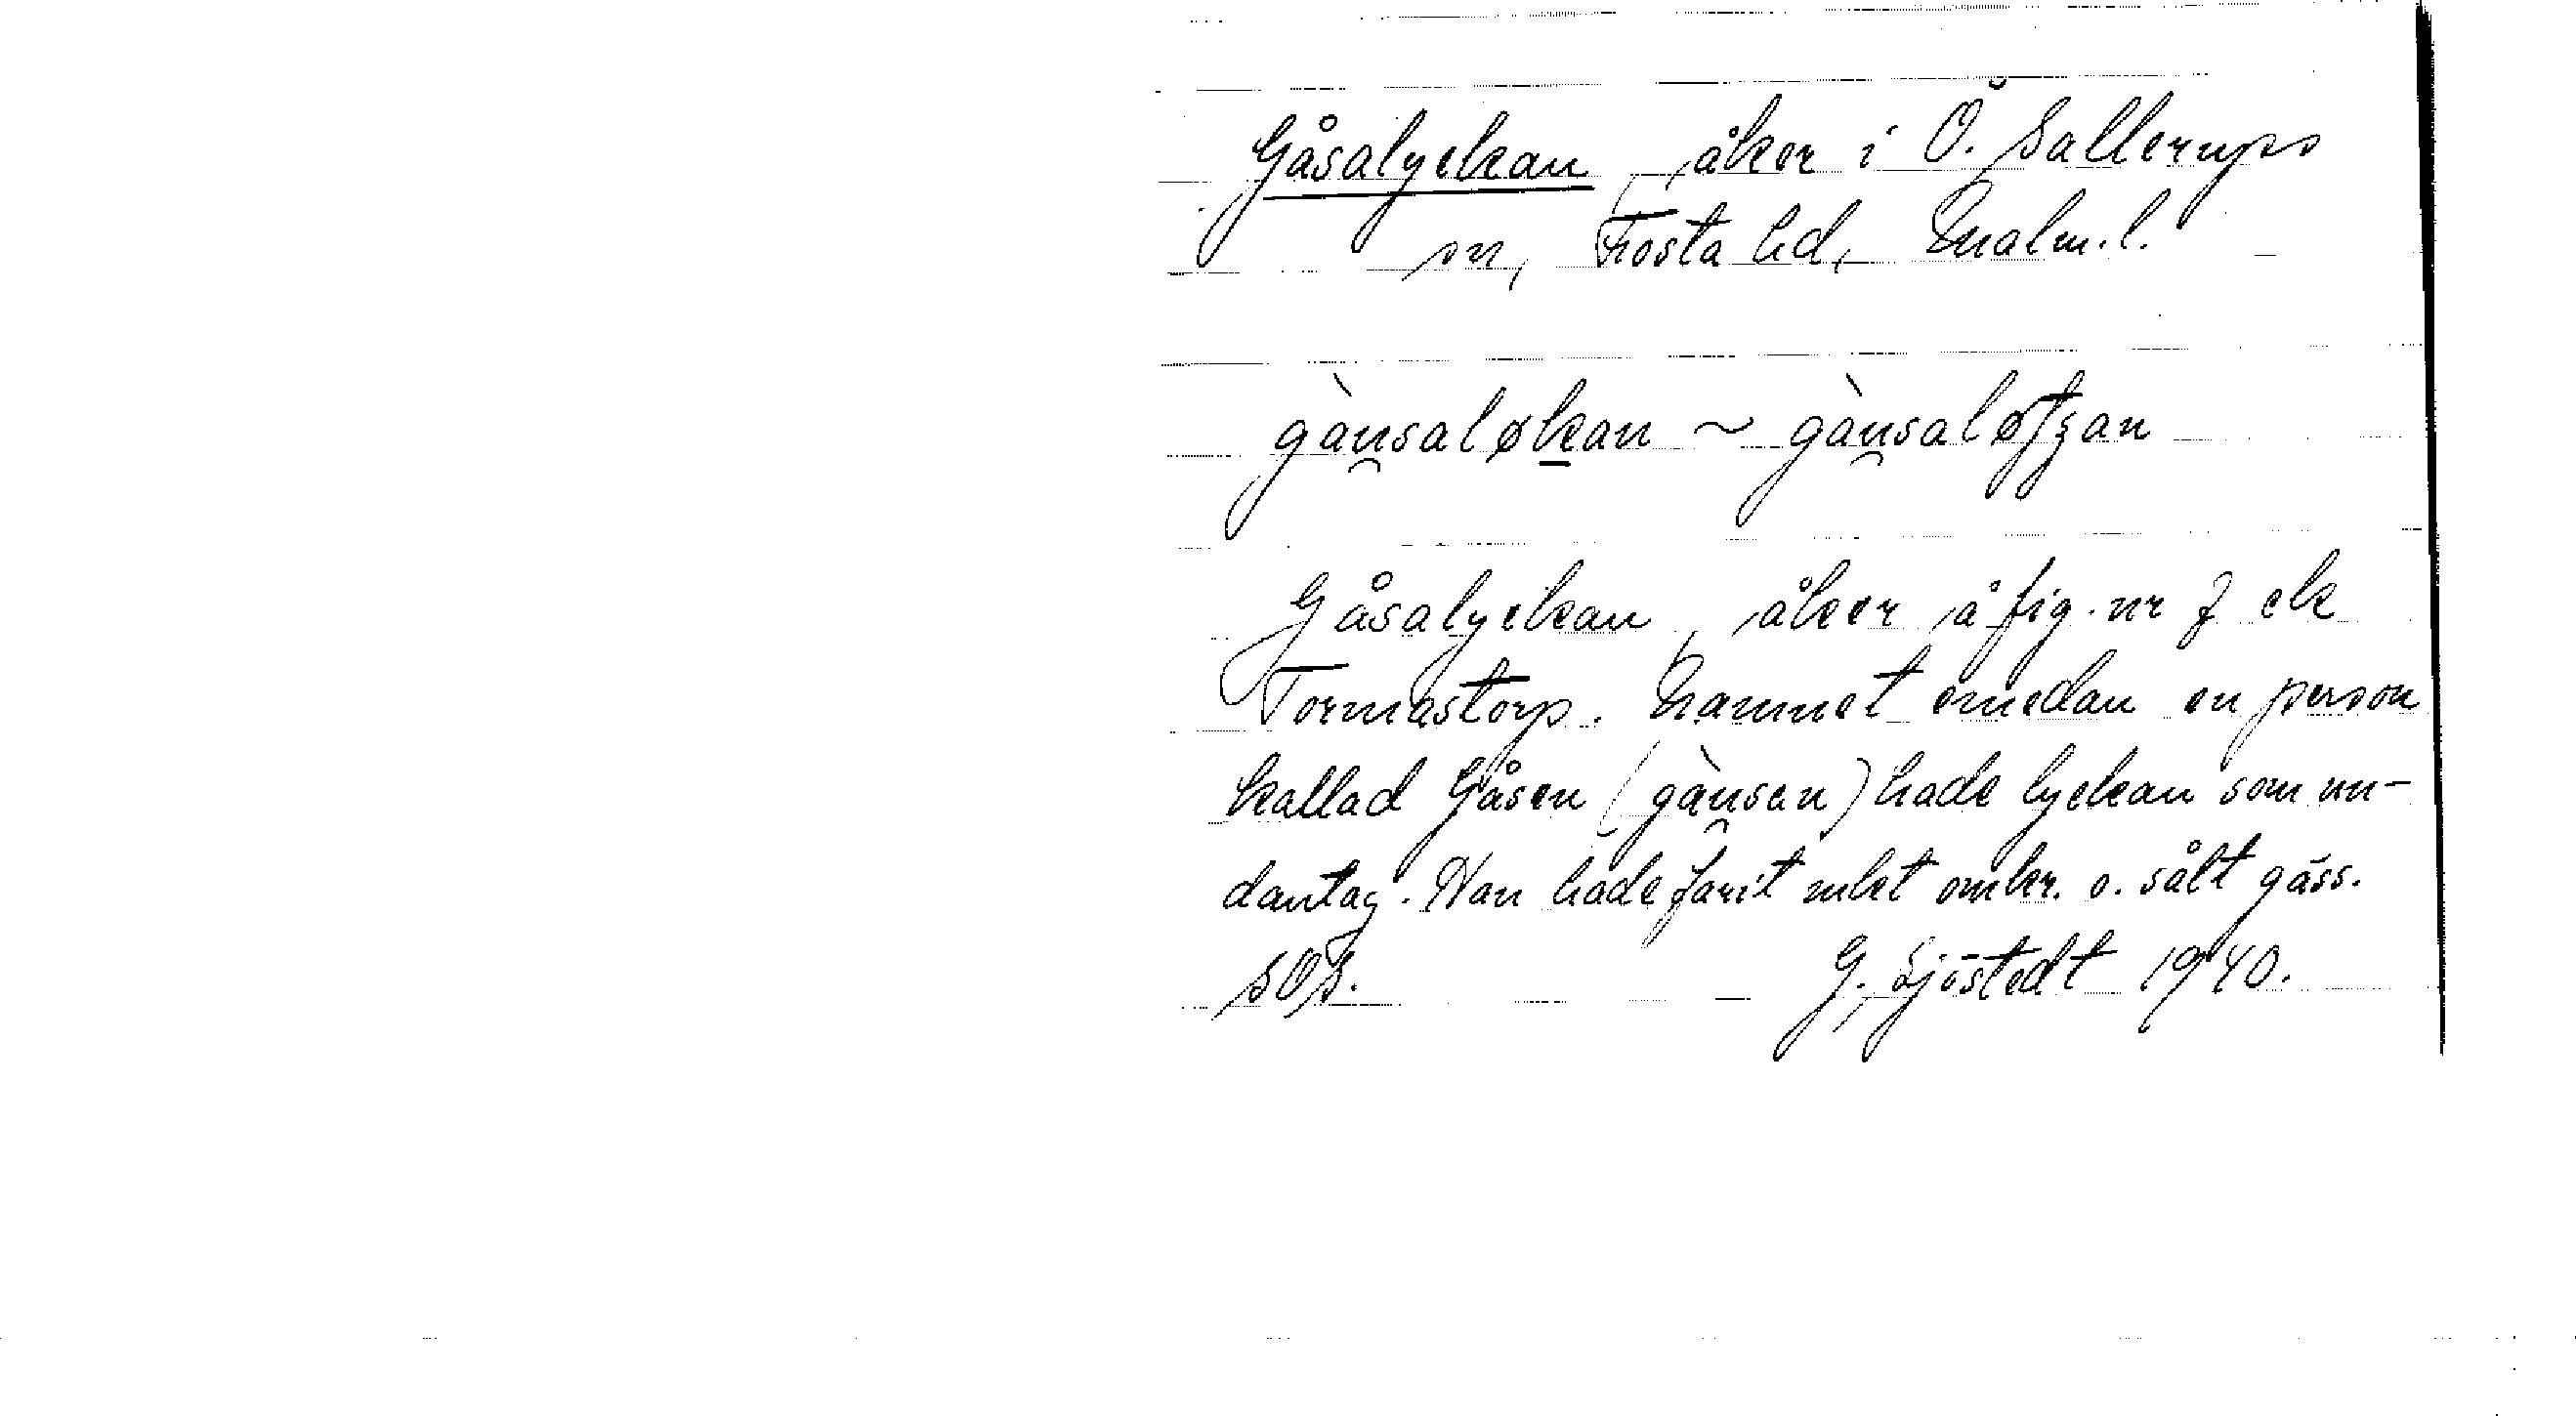 Gåsalyckan, åker i Ö. Sallerups
sn, Frosta hd, Malm.l.
gàu̯saløkan ~ gàu̯saløtʒan
Gåsalyckan, åker å fig. nr 7 ek
Tormastorp. Namnet emedan en person
kallad Gåsen (gàu̯san) hade lyckan som un-
dantag. Han hade farit mkt omkr. o. sålt gäss.
SOB. G. Sjöstedt 1940.